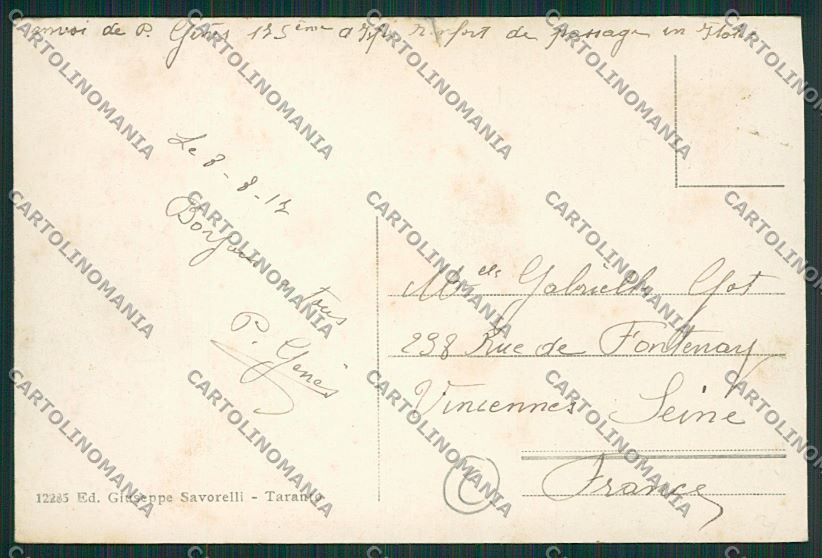 envoi de P. Genès 175ème renfort de passage en
Le 8-8-17
Bonjour a tous
P. Genès
Melle Gabrielle Got
238 Rue de Fontenay
Vincennes Seine
France
12285 Ed. Giuseppe Savorelli - Taranto
©
CARTOLINOMANIA